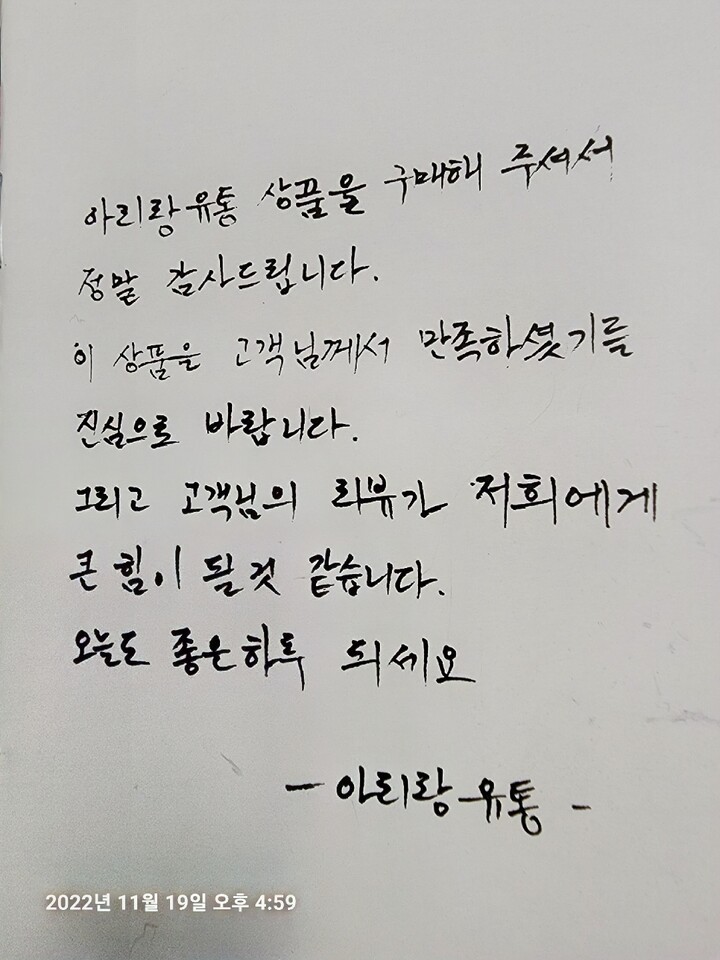 아리랑유통 상품을 구매해 주셔서
정말 감사드립니다.
이 상품을 고객님께서 만족하셨기를
진심으로 바랍니다.
그리고 고객님의 리뷰가 저희에게
큰 힘이 될것 같습니다.
오늘도 좋은하루 되세요
- 아리랑유통 -
2022년 11월 19일 오후 4:59